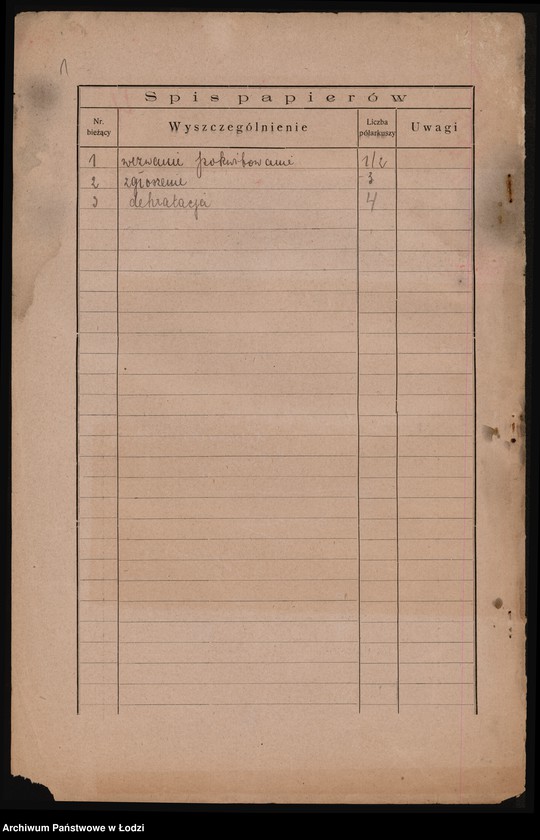 1
Spis papierów
Nr. bieżący
Wyszczególnienie
Liczba półarkuszy
Uwagi
1 wezwanie pokwitowanie 1/2
2 zgłoszenie 3
3 deklaracja 4
Archiwum Państwowe w Łodzi